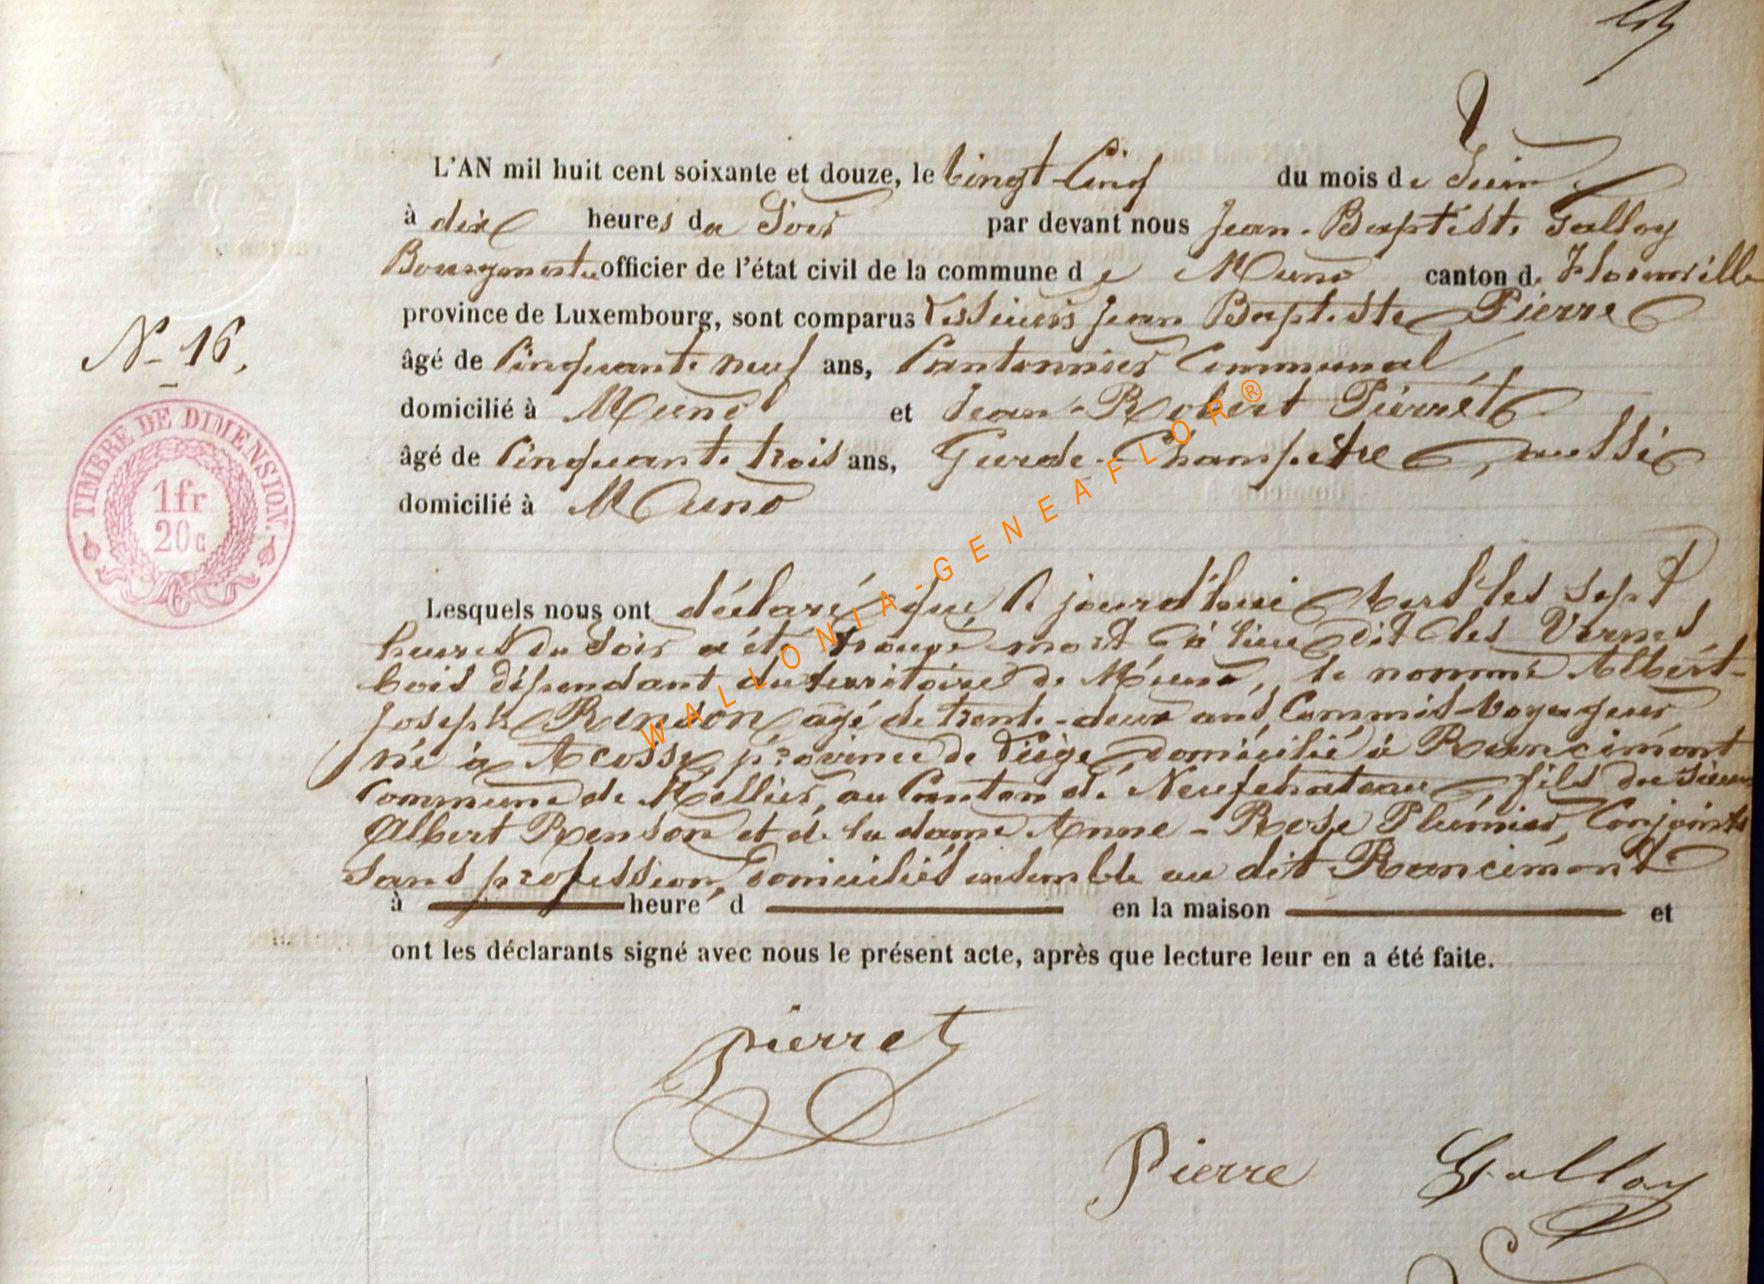 L'AN mil huit cent soixante et douze, le Vingt-Cinq du mois de Juin
à dix heures du Soir par devant nous Jean-Baptiste Galloy
Bourgmestre officier de l'état civil de la commune de Muno canton de Florenville
province de Luxembourg, sont comparus Jean Baptiste Pierre
N° 16.
âgé de Cinquante neuf ans, Cantonnier Communal,
domicilié à Muno et Jean-Robert Pierret
âgé de Cinquante trois ans, Garde-Champêtre, aussi
domicilié à Muno
TIMBRE DE DIMENSION.
1fr
20c
Lesquels nous ont déclaré que ce jourd'hui vers les sept
heures du Soir a été trouvé mort à lieu dit les Vernes
bois dépendant du territoire de Muno, le nommé Albert-
Joseph Renson âgé de trente-deux ans, Commis-Voyageur
né à Acosse, province de Liège, domicilié à Rancimont
Commune de Mellier, au Canton de Neufchateau, fils du Sieur
Albert Renson et de la dame Anne-Rose Plumier, Conjoints
sans profession, domiciliés ensemble au dit Rancimont
à heure d en la maison et
ont les déclarants signé avec nous le présent acte, après que lecture leur en a été faite.
Pierret
Pierre Galloy
WALLONIA-GENEAFLOR®